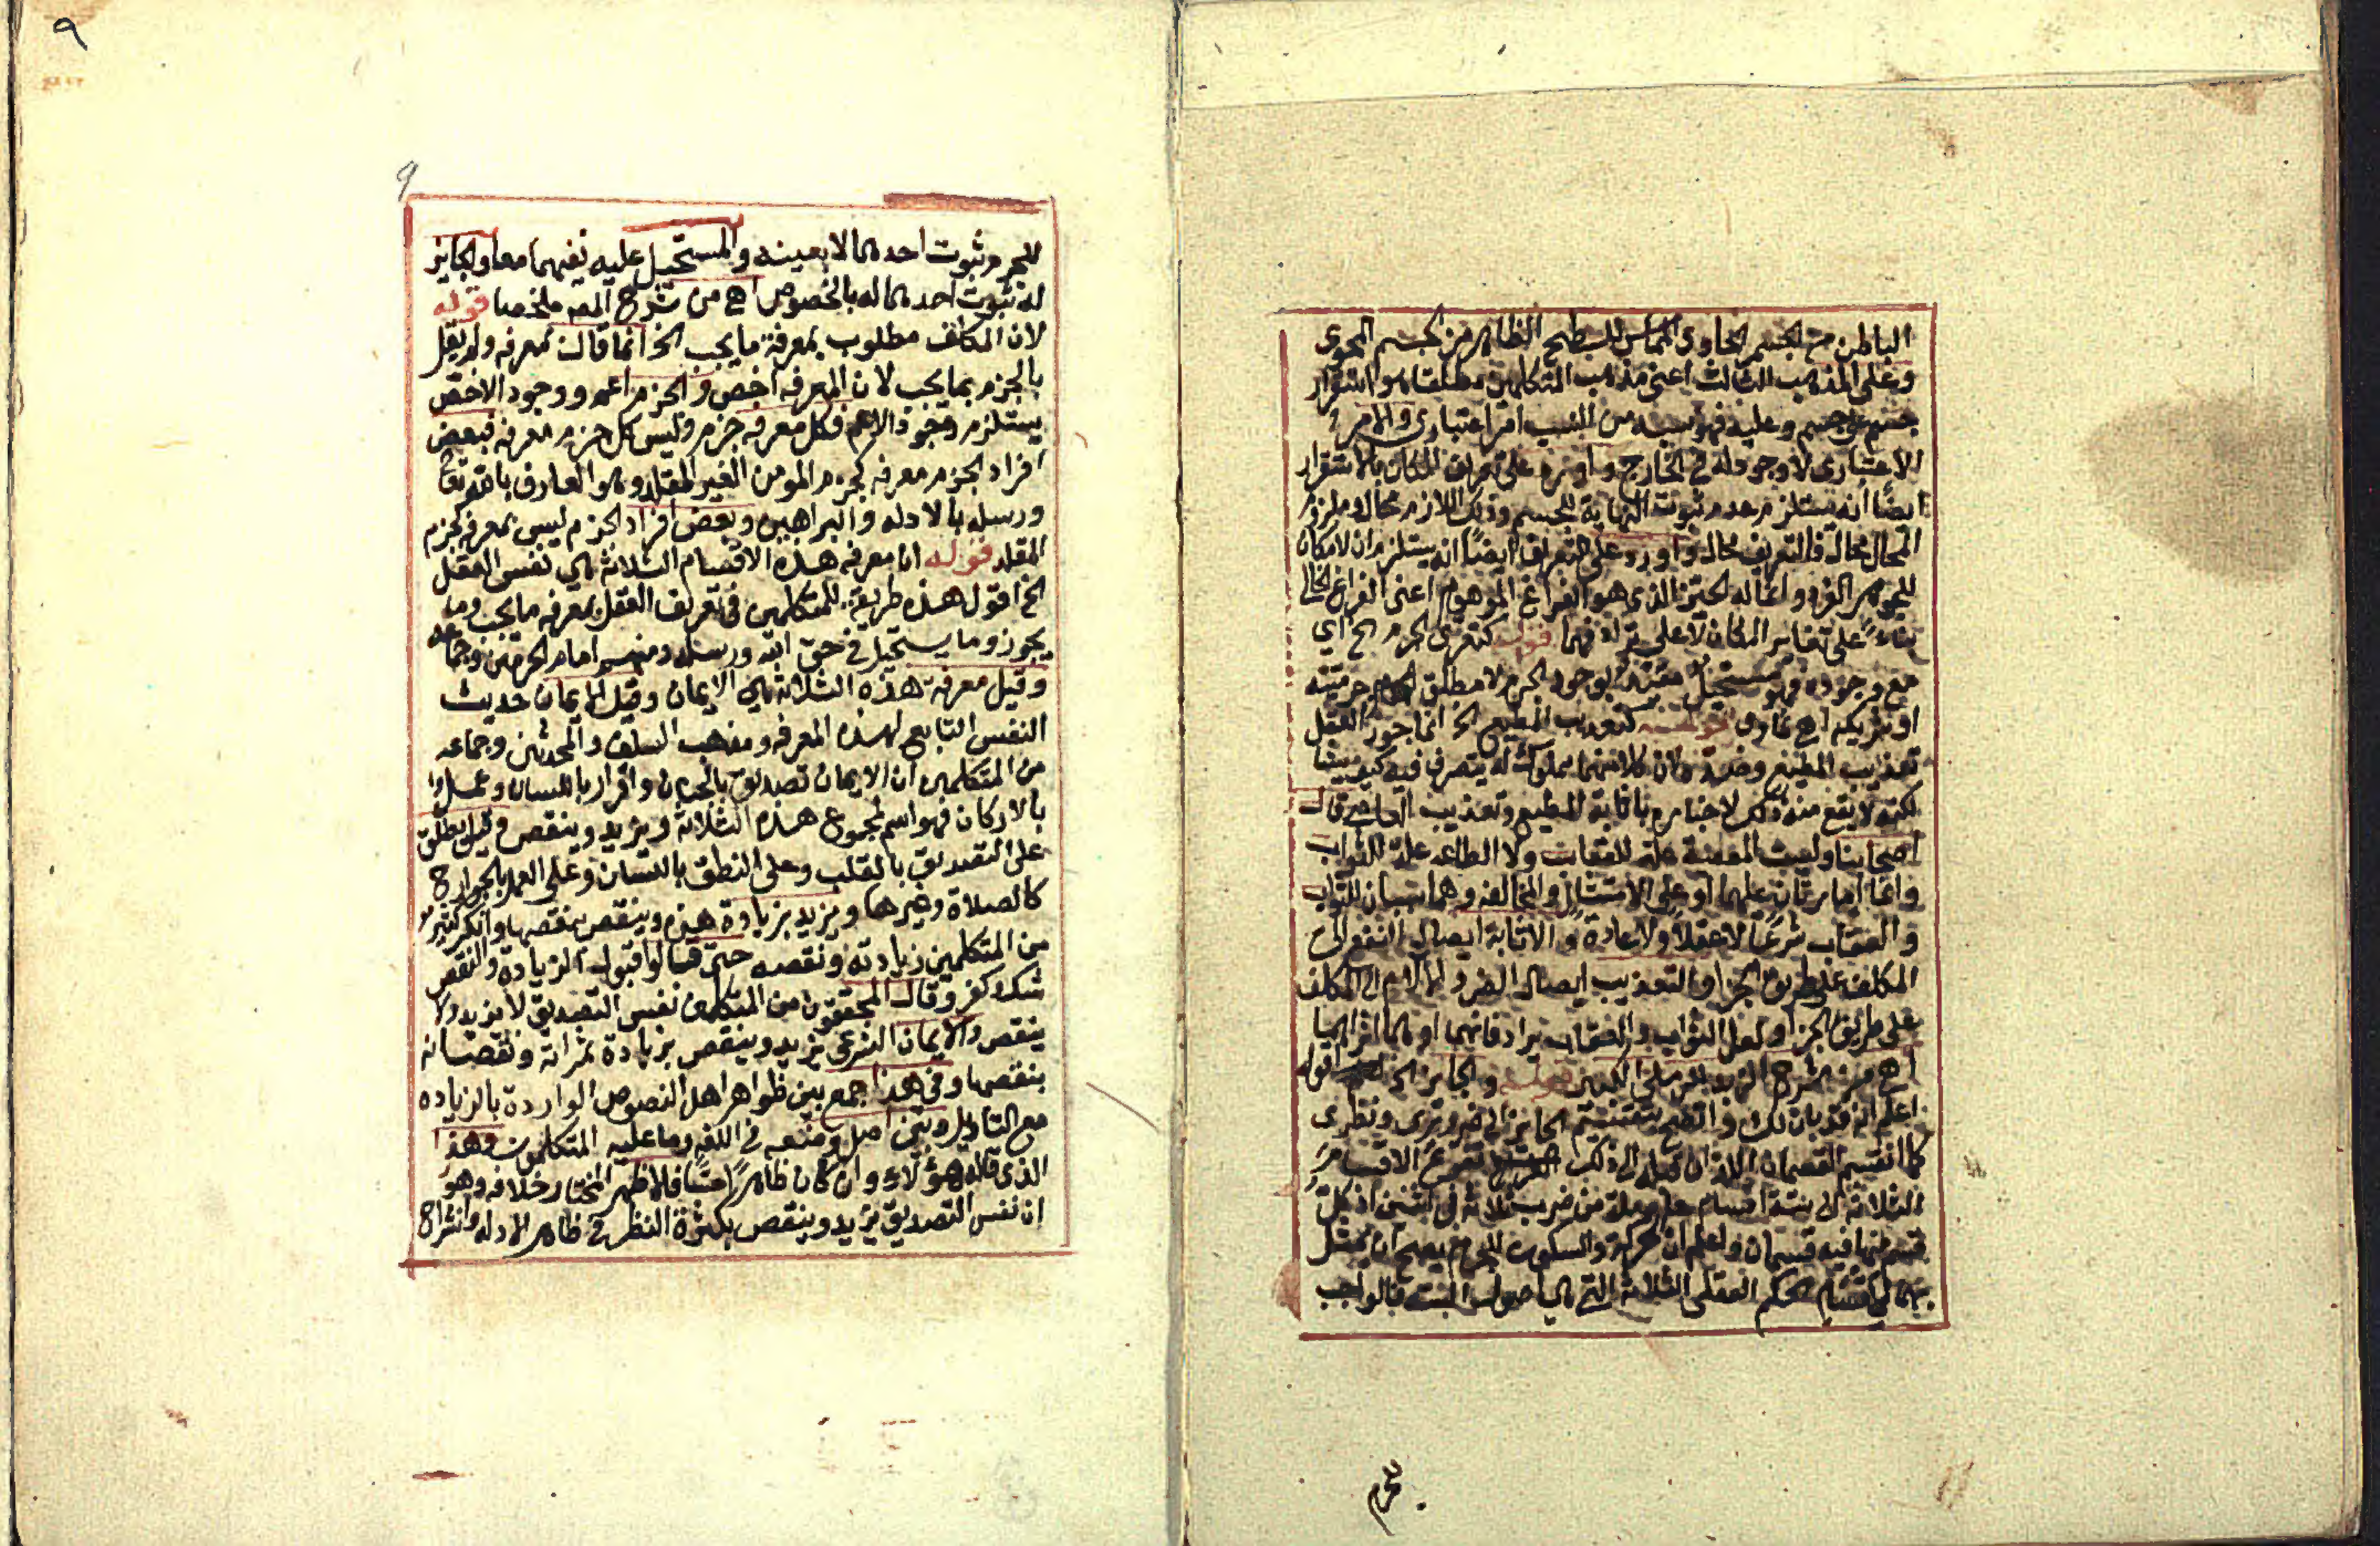 الباطن من الجسم الحاوى المماس للسطح الظاهر من الجسم المحوى
وعلى المذهب الثالث اعنى مذهب المتكلمين مطلقا هو استقرار
جسم على جسم وعليه فهو نسبه من النسب امر اعتبارى والامر
الاعتبارى لا وجود له فى الخارج واورد على تعريف المكان بالاستقرار
ايضًا انه يستلزم عدم ثبوت النهاية للجسم وذلك اللازم محال وملزوم
المحال محال فالتعريف محال واورد على التعريف ايضًا انه يستلزم ان لا مكان
للجوهر الفرد وانما له الحيز الذى هو الفراغ الموهوم اعنى الفراغ الخالى
بناءً على تغاير المكان لا على ترادفهما قوله كتعرى الجرم الخ اي
مع وجوده فهو مستحيل مقيد بوجود الجرم لا مطلق الجرم
او شريكه اهـ قوله كتعذيب المطيع الخ انما جوز العقل
تعذيب المطيع وضده لان كلا منهما مملوك له يتصرف فيه كيف يشا
لكنه لا يقع منه ذلك لاخباره باثابة المطيع وتعذيب العاصى قال
اصحابنا وليست المعصية علة للعقاب ولا الطاعه علة للثواب
وانما امارتان عليهما او على الامتثال والمخالفه وهما سببان للثواب
والعقاب شرعًا لا عقلا ولا عادة والاثابة ايصال النفع الى
المكلف على طريق الجزا والتعذيب ايصال الضرر والالام الى المكلف
على طريق الجزا ولعل الثواب والعقاب يرادفانهما او هما اثراهما
اهـ من شرح الزبد للرملى الكبير قوله والجايز الخ اقوله
اعلم انه قد بان لك واتضح بتقسيم الجايز الى ضرورى ونظرى
كما انقسم القسمان اللذان قبله الى ذلك تفرع الاقسام
الثلاثة الى ستة اقسام حاصلة من ضرب ثلاثة فى اثنين اذ كل
قسم منها فيه قسمان واعلم ان الحركة والسكون للجرم يصح ان يمثل
بهما لاقسام الحكم العقلى الثلاثة التى هى اصول الستة فالواجب
للجرم
٩
9
للجرم ثبوت احدهما لا بعينه والمستحيل عليه نفيهما معا والجايز
له ثبوت احدهما له بالخصوص اهـ من شرح المصـ ملخصا قوله
لان المكلف مطلوب بمعرفة ما يجب الخ انما قال بمعرفه ولم يقل
بالجزم بما يجب لان المعرفه اخص والجزم اعم ووجود الاخص
يستلزم وجود الاعم فكل معرفه جزم وليس كل جزم معرفه فبعض
افراد الجزم معرفه كجزم المومن الغير المقلد وهو العارف بالله تعالى
ورسله بالادله والبراهين وبعض افراد الجزم ليس بمعرفه كجزم
المقلد قوله ان معرفه هذه الاقسام الثلاثه هي نفس العقل
الخ اقول هذه طريقة للمتكلمين فى تعريف العقل بمعرفه ما يجب وما
يجوز وما يستحيل فى حق الله ورسله ومنهم امام الحرمين وجماعه
وقيل معرفة هذه الثلاثة هي الايمان وقيل الايمان حديث
النفس التابع لهذه المعرفه ومذهب السلف والمحدثين وجماعه
من المتكلمين ان الايمان تصديق بالجنان واقرار باللسان وعمل
بالاركان فهو اسم لمجموع هذه الثلاثة ويزيد وينقص وقيل يطلق
على التصديق بالقلب وعلى النطق باللسان وعلى العمل بالجوارح
كالصلاة وغيرها ويزيد بزيادة هذه وينقص بنقصها وانكر كثير
من المتكلمين زيادته ونقصه حتى قالوا قبول الزيادة والنقص
شك كفر وقال المحققون من المتكلمين نفس التصديق لا يزيد ولا
ينقص والايمان الشرعى يزيد وينقص بزيادة ثمراته ونقصانه
بنقصها وفى هذا جمع بين ظواهر اهل النصوص الواردة بالزياده
مع التاويل وبين اصل وضعه فى اللغه وما عليه المتكلمون وهذا
الذى قاله هؤلاء وان كان ظاهرًا حسنًا فالاظهر المختار خلافه وهو
ان نفس التصديق يزيد وينقص بكثرة النظر فى ظاهر الادله وانشراح